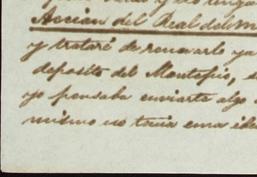 Accion del Real del M
y trataré de renovarlo ya
deposito del Montepio,
yo pensaba enviarte algo
mismo no tenia una ide